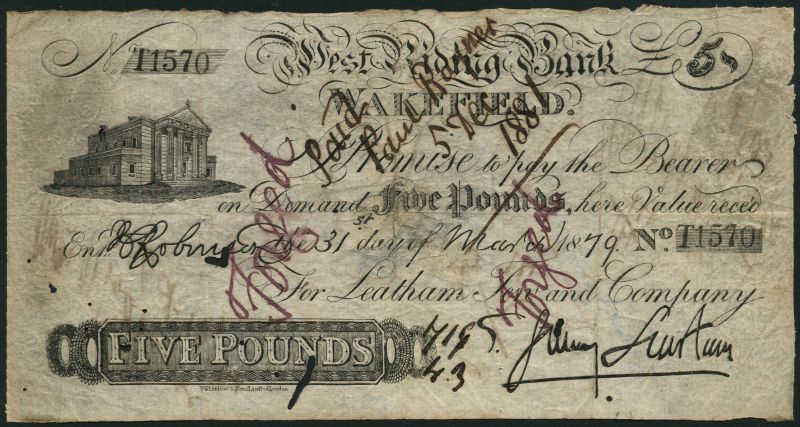 No. T1570 West Riding Bank £5
WAKEFIELD.
I Promise to pay the Bearer
on Demand Five Pounds, here Value recd
Entd. the 31st day of March 1879. No. T1570
For Leatham Tew and Company
FIVE POUNDS
Waterlow & Sons Limited London
Paid
5
1881
719
43